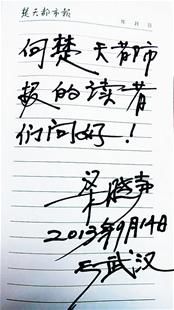 楚天都市报
年 月 日
向楚天都市
报的读者
们问好!
2013年9月14日
于武汉